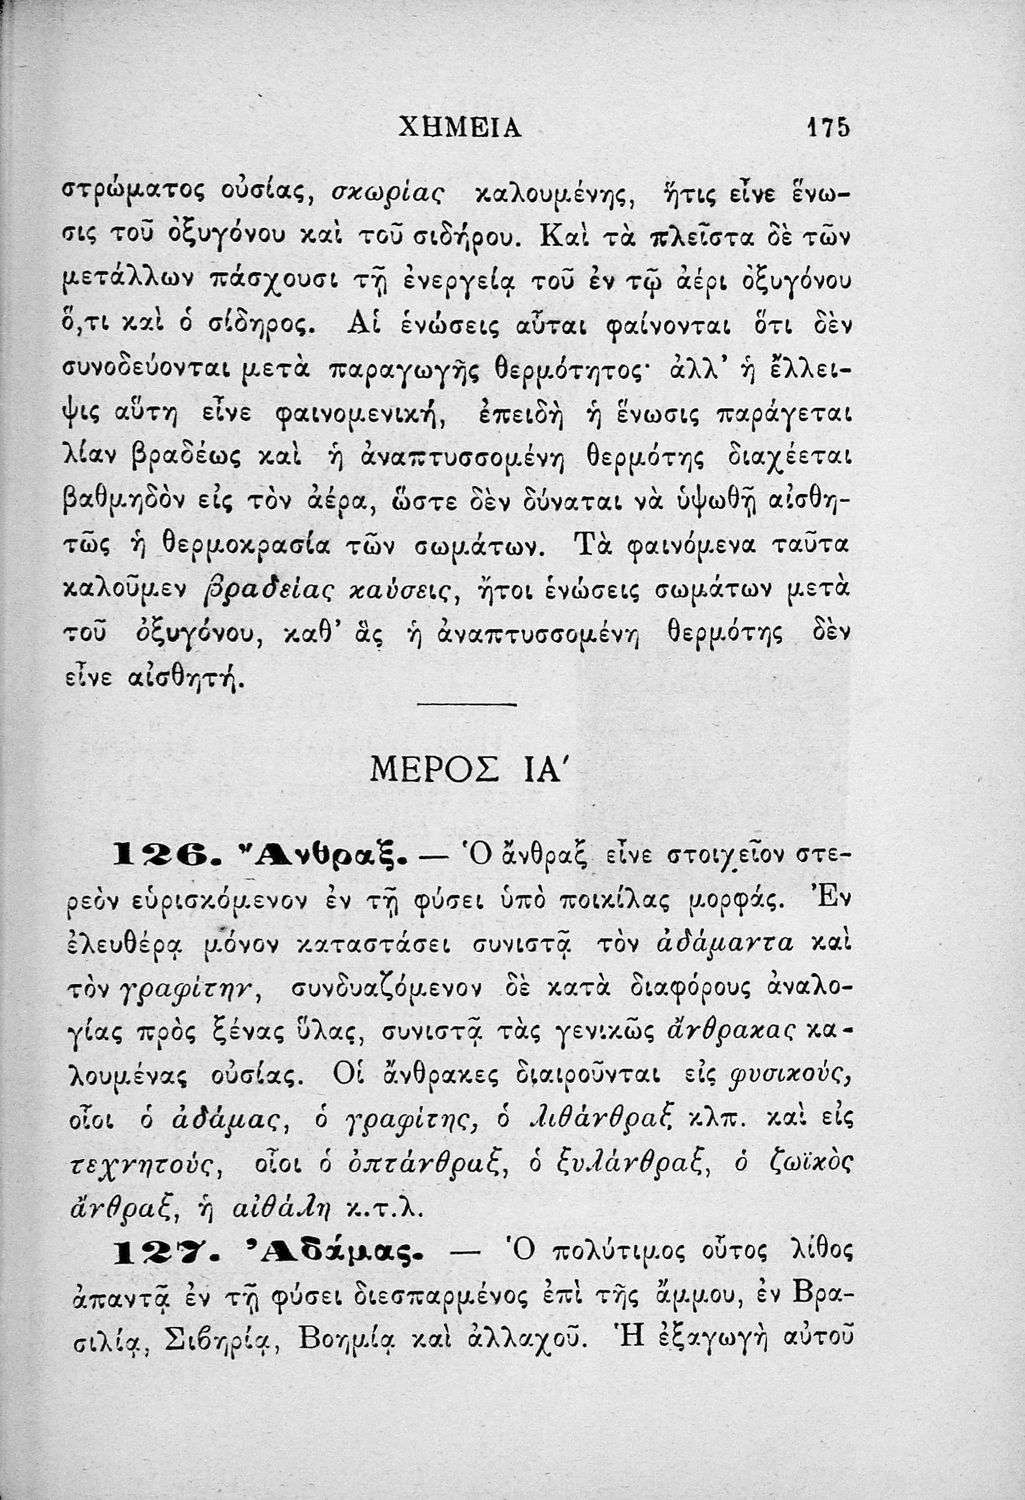 ΧΗΜΕΙΑ 175
στρώματος οὐσίας, σκωρίας καλουμένης, ἥτις εἶνε ἕνω-
σις τοῦ ὀξυγόνου καὶ τοῦ σιδήρου. Καὶ τὰ πλεῖστα δὲ τῶν
μετάλλων πάσχουσι τῇ ἐνεργείᾳ τοῦ ἐν τῷ ἀέρι ὀξυγόνου
ὅ,τι καὶ ὁ σίδηρος. Αἱ ἑνώσεις αὗται φαίνονται ὅτι δὲν
συνοδεύονται μετὰ παραγωγῆς θερμότητος· ἀλλ’ ἡ ἔλλει-
ψις αὕτη εἶνε φαινομενική, ἐπειδὴ ἡ ἕνωσις παράγεται
λίαν βραδέως καὶ ἡ ἀναπτυσσομένη θερμότης διαχέεται
βαθμηδὸν εἰς τὸν ἀέρα, ὥστε δὲν δύναται νὰ ὑψωθῇ αἰσθη-
τῶς ἡ θερμοκρασία τῶν σωμάτων. Τὰ φαινόμενα ταῦτα
καλοῦμεν βραδείας καύσεις, ἤτοι ἑνώσεις σωμάτων μετὰ
τοῦ ὀξυγόνου, καθ’ ἃς ἡ ἀναπτυσσομένη θερμότης δὲν
εἶνε αἰσθητή.
ΜΕΡΟΣ ΙΑ′
126. Ἄνθραξ. — Ὁ ἄνθραξ εἶνε στοιχεῖον στε-
ρεὸν εὑρισκόμενον ἐν τῇ φύσει ὑπὸ ποικίλας μορφάς. Ἐν
ἐλευθέρᾳ μόνον καταστάσει συνιστᾷ τὸν ἀδάμαντα καὶ
τὸν γραφίτην, συνδυαζόμενον δὲ κατὰ διαφόρους ἀναλο-
γίας πρὸς ξένας ὕλας, συνιστᾷ τὰς γενικῶς ἄνθρακας κα-
λουμένας οὐσίας. Οἱ ἄνθρακες διαιροῦνται εἰς φυσικούς,
οἷοι ὁ ἀδάμας, ὁ γραφίτης, ὁ λιθάνθραξ κλπ. καὶ εἰς
τεχνητούς, οἷοι ὁ ὀπτάνθραξ, ὁ ξυλάνθραξ, ὁ ζωϊκὸς
ἄνθραξ, ἡ αἰθάλη κ.τ.λ.
127. Ἀδάμας. — Ὁ πολύτιμος οὗτος λίθος
ἀπαντᾷ ἐν τῇ φύσει διεσπαρμένος ἐπὶ τῆς ἄμμου, ἐν Βρα-
σιλίᾳ, Σιβηρίᾳ, Βοημίᾳ καὶ ἀλλαχοῦ. Ἡ ἐξαγωγὴ αὐτοῦ